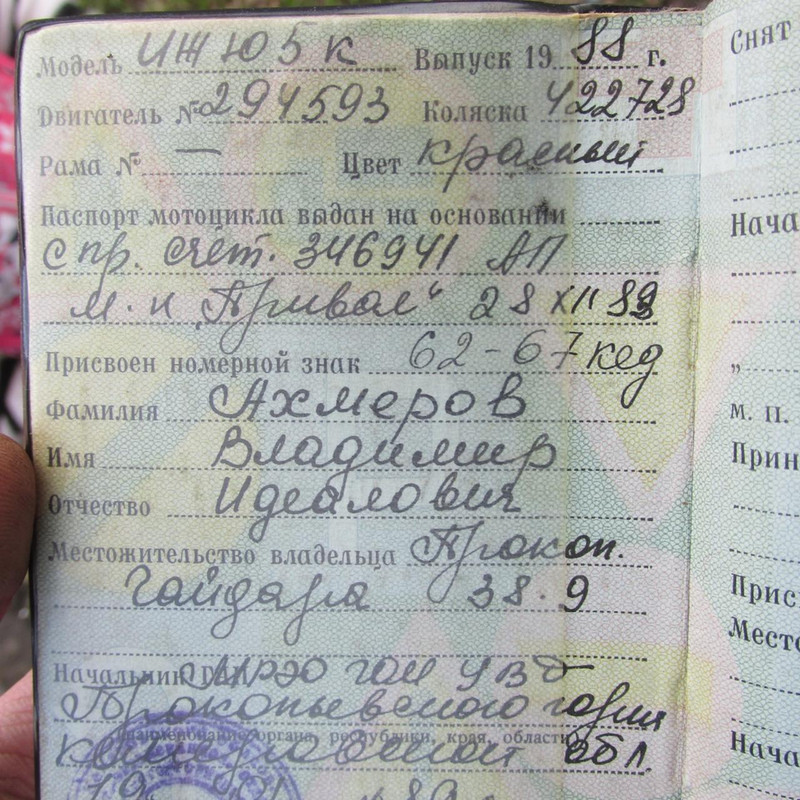 Модель ИЖ Ю5К Выпуск 19 88 г.
Двигатель № 294593 Коляска 422728
Рама № — Цвет красный
Паспорт мотоцикла выдан на основании
Спр. счёт. 346941 АП
м. н „Привал“ 28 XII 89
Присвоен номерной знак 62-67 кед
Фамилия Ахмеров
Имя Владимир
Отчество Идеалович
Местожительство владельца Прокоп.
Гайдара 38.9
Начальник ГАИ МРЭО ГАИ УВД
Прокопьевского
наименование органа, республики, края, области
кемеровской обл
19
Снят
Нача
„
м. п.
Прин
Прис
Место
Нача